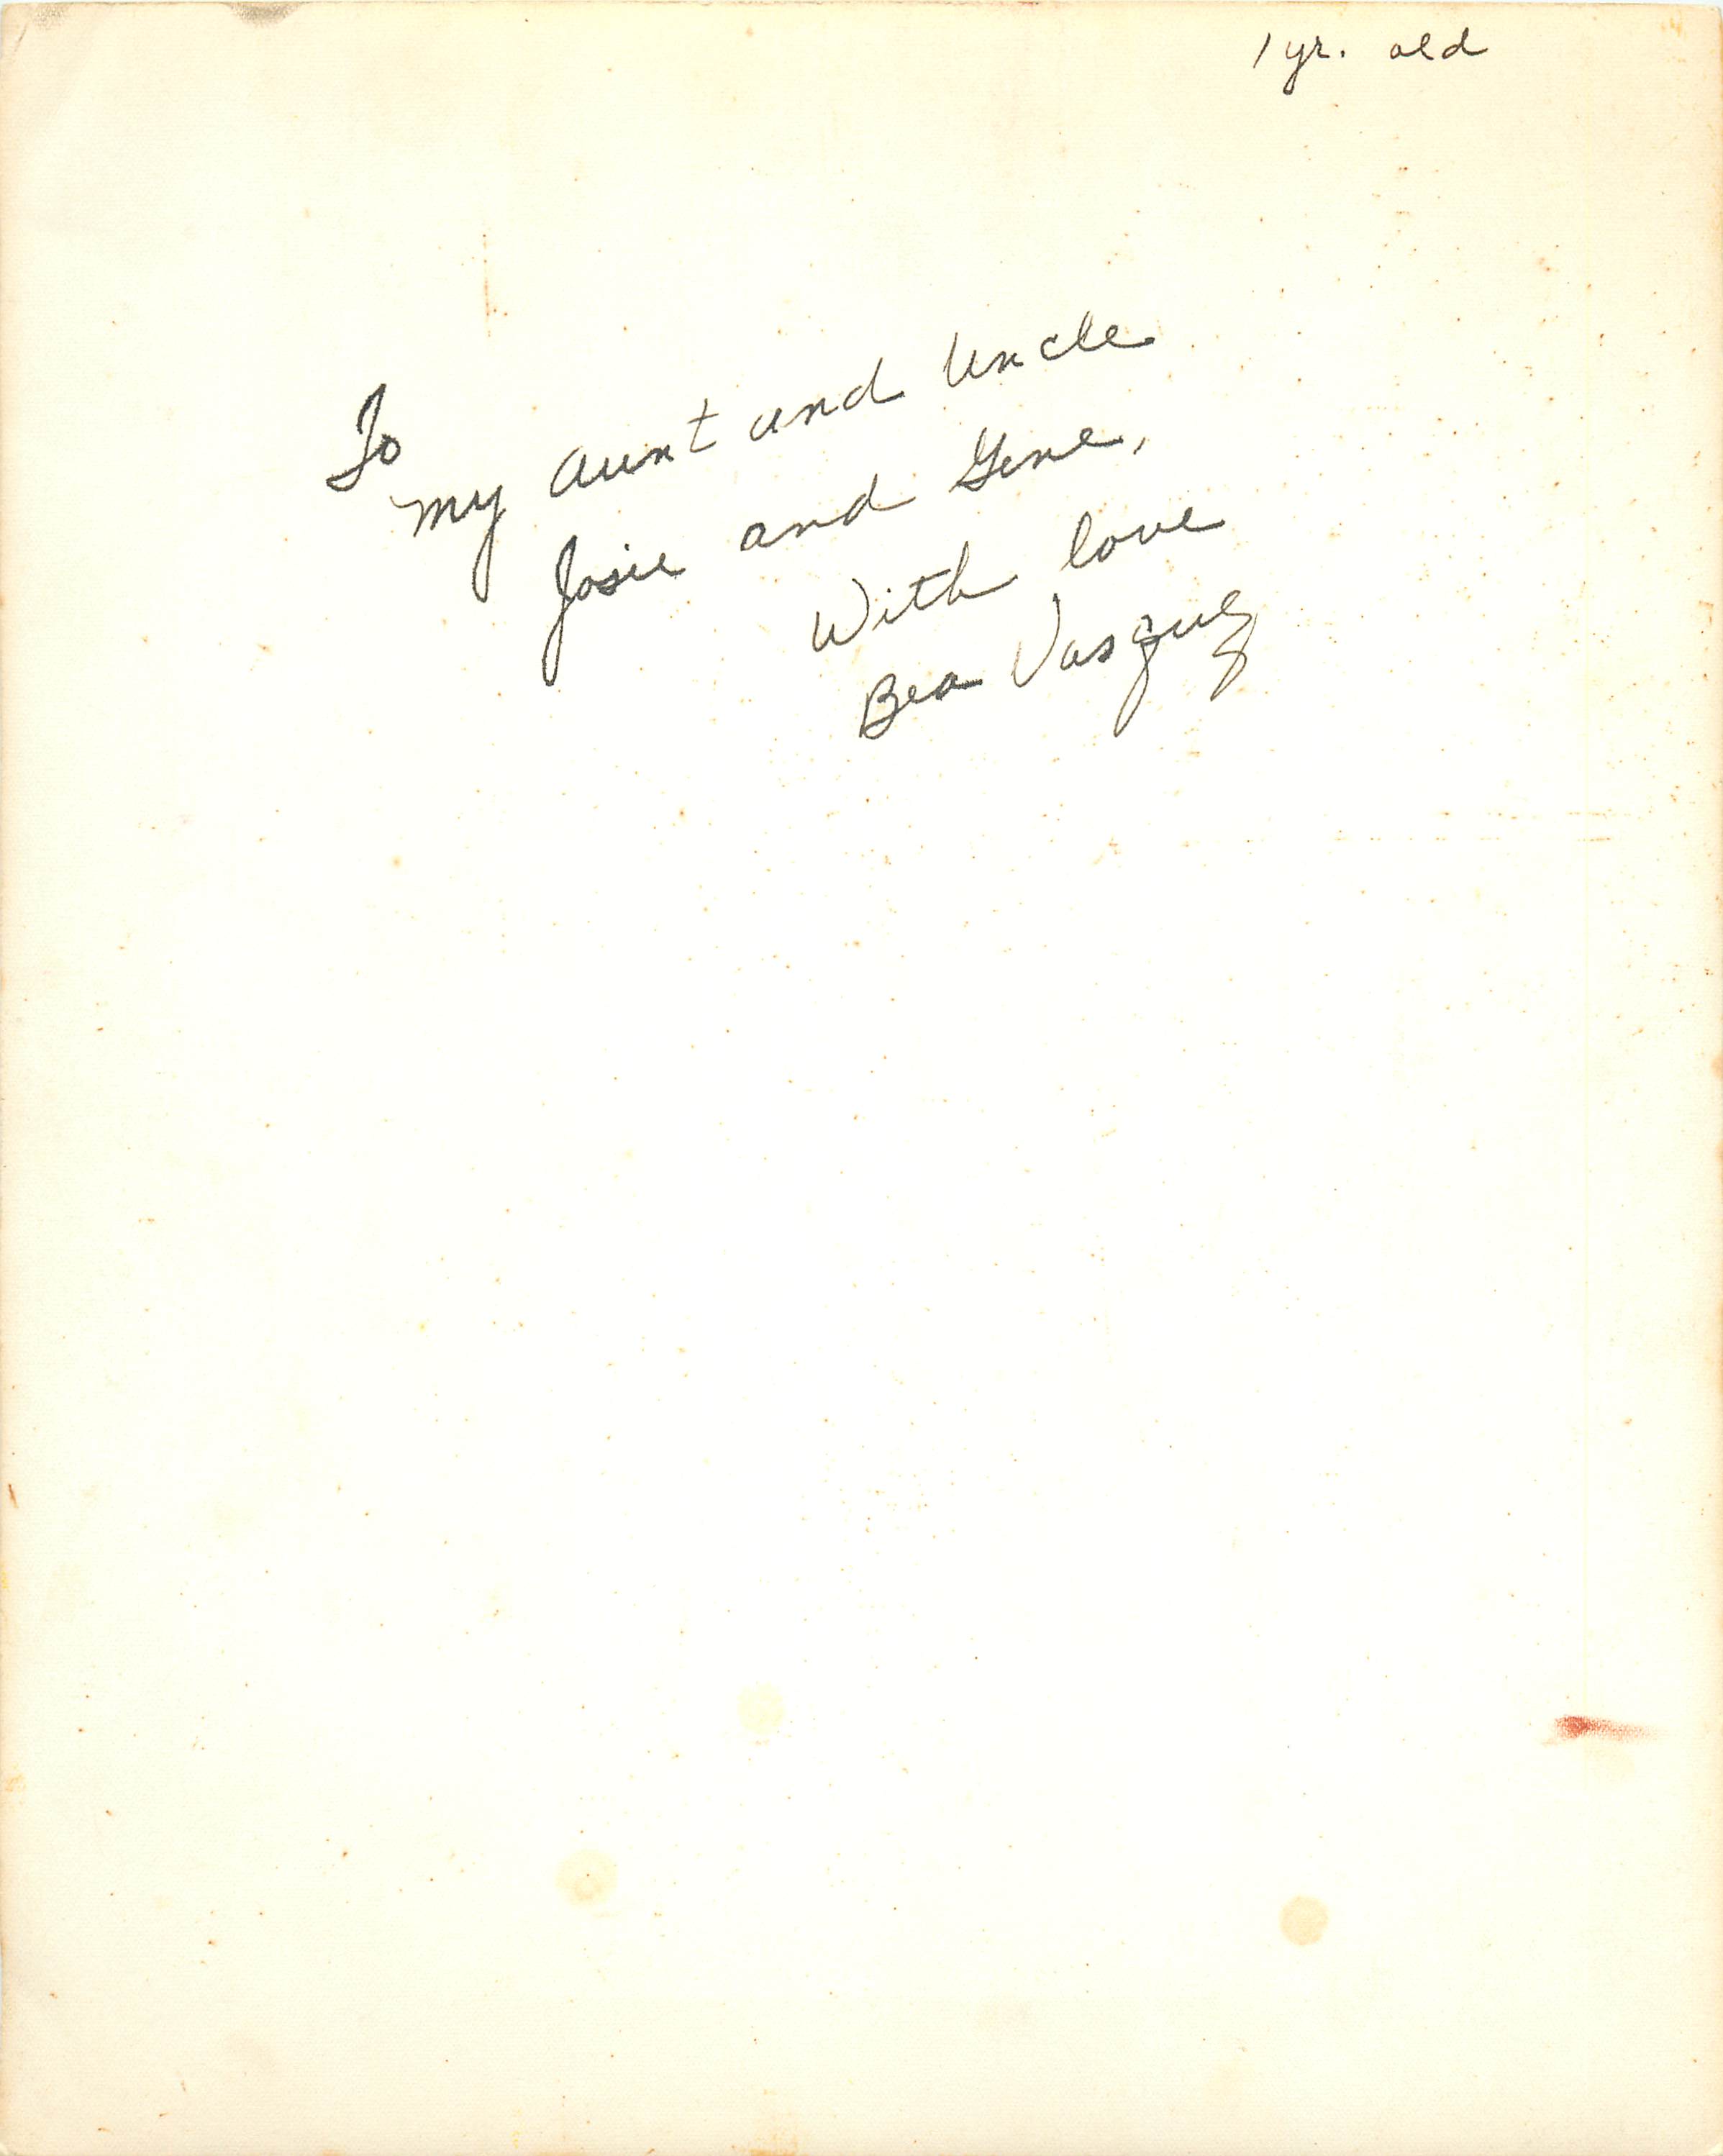 1 yr. old
To
my aunt and Uncle
Josie and Gene,
With love
Bea Vasquez